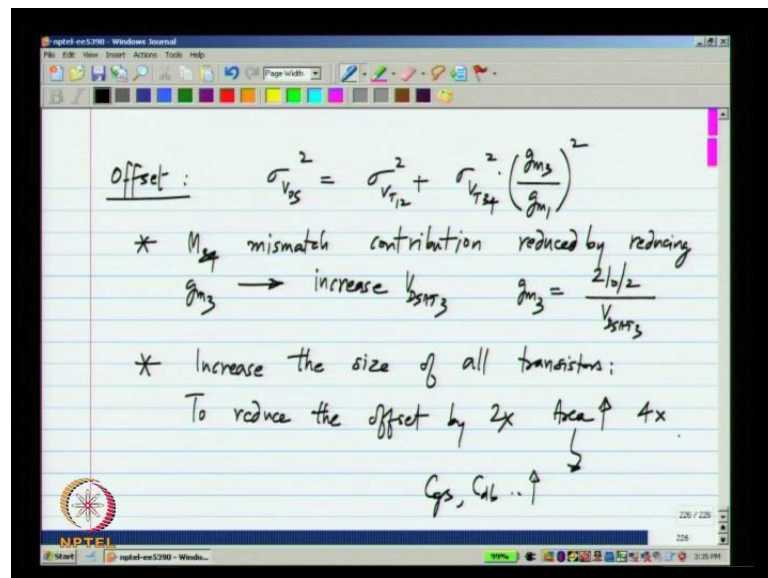 nptel-ee5390 - Windows Journal
File Edit View Insert Actions Tools Help
Page Width
B I
Offset : σ_{V_{OS}}^2 = σ_{V_{T12}}^2 + σ_{V_{T34}}^2 · (g_{m3}/g_{m1})^2
* M_{34} mismatch contribution reduced by reducing
g_{m3} → increase V_{DSAT3} g_{m3} = (2I_0/2)/V_{DSAT3}
* Increase the size of all transistors:
To reduce the offset by 2x Area ↑ 4x.
C_{gs}, C_{db} .. ↑
NPTEL
226 / 226
226
Start nptel-ee5390 - Windo... 99% 3:35 PM